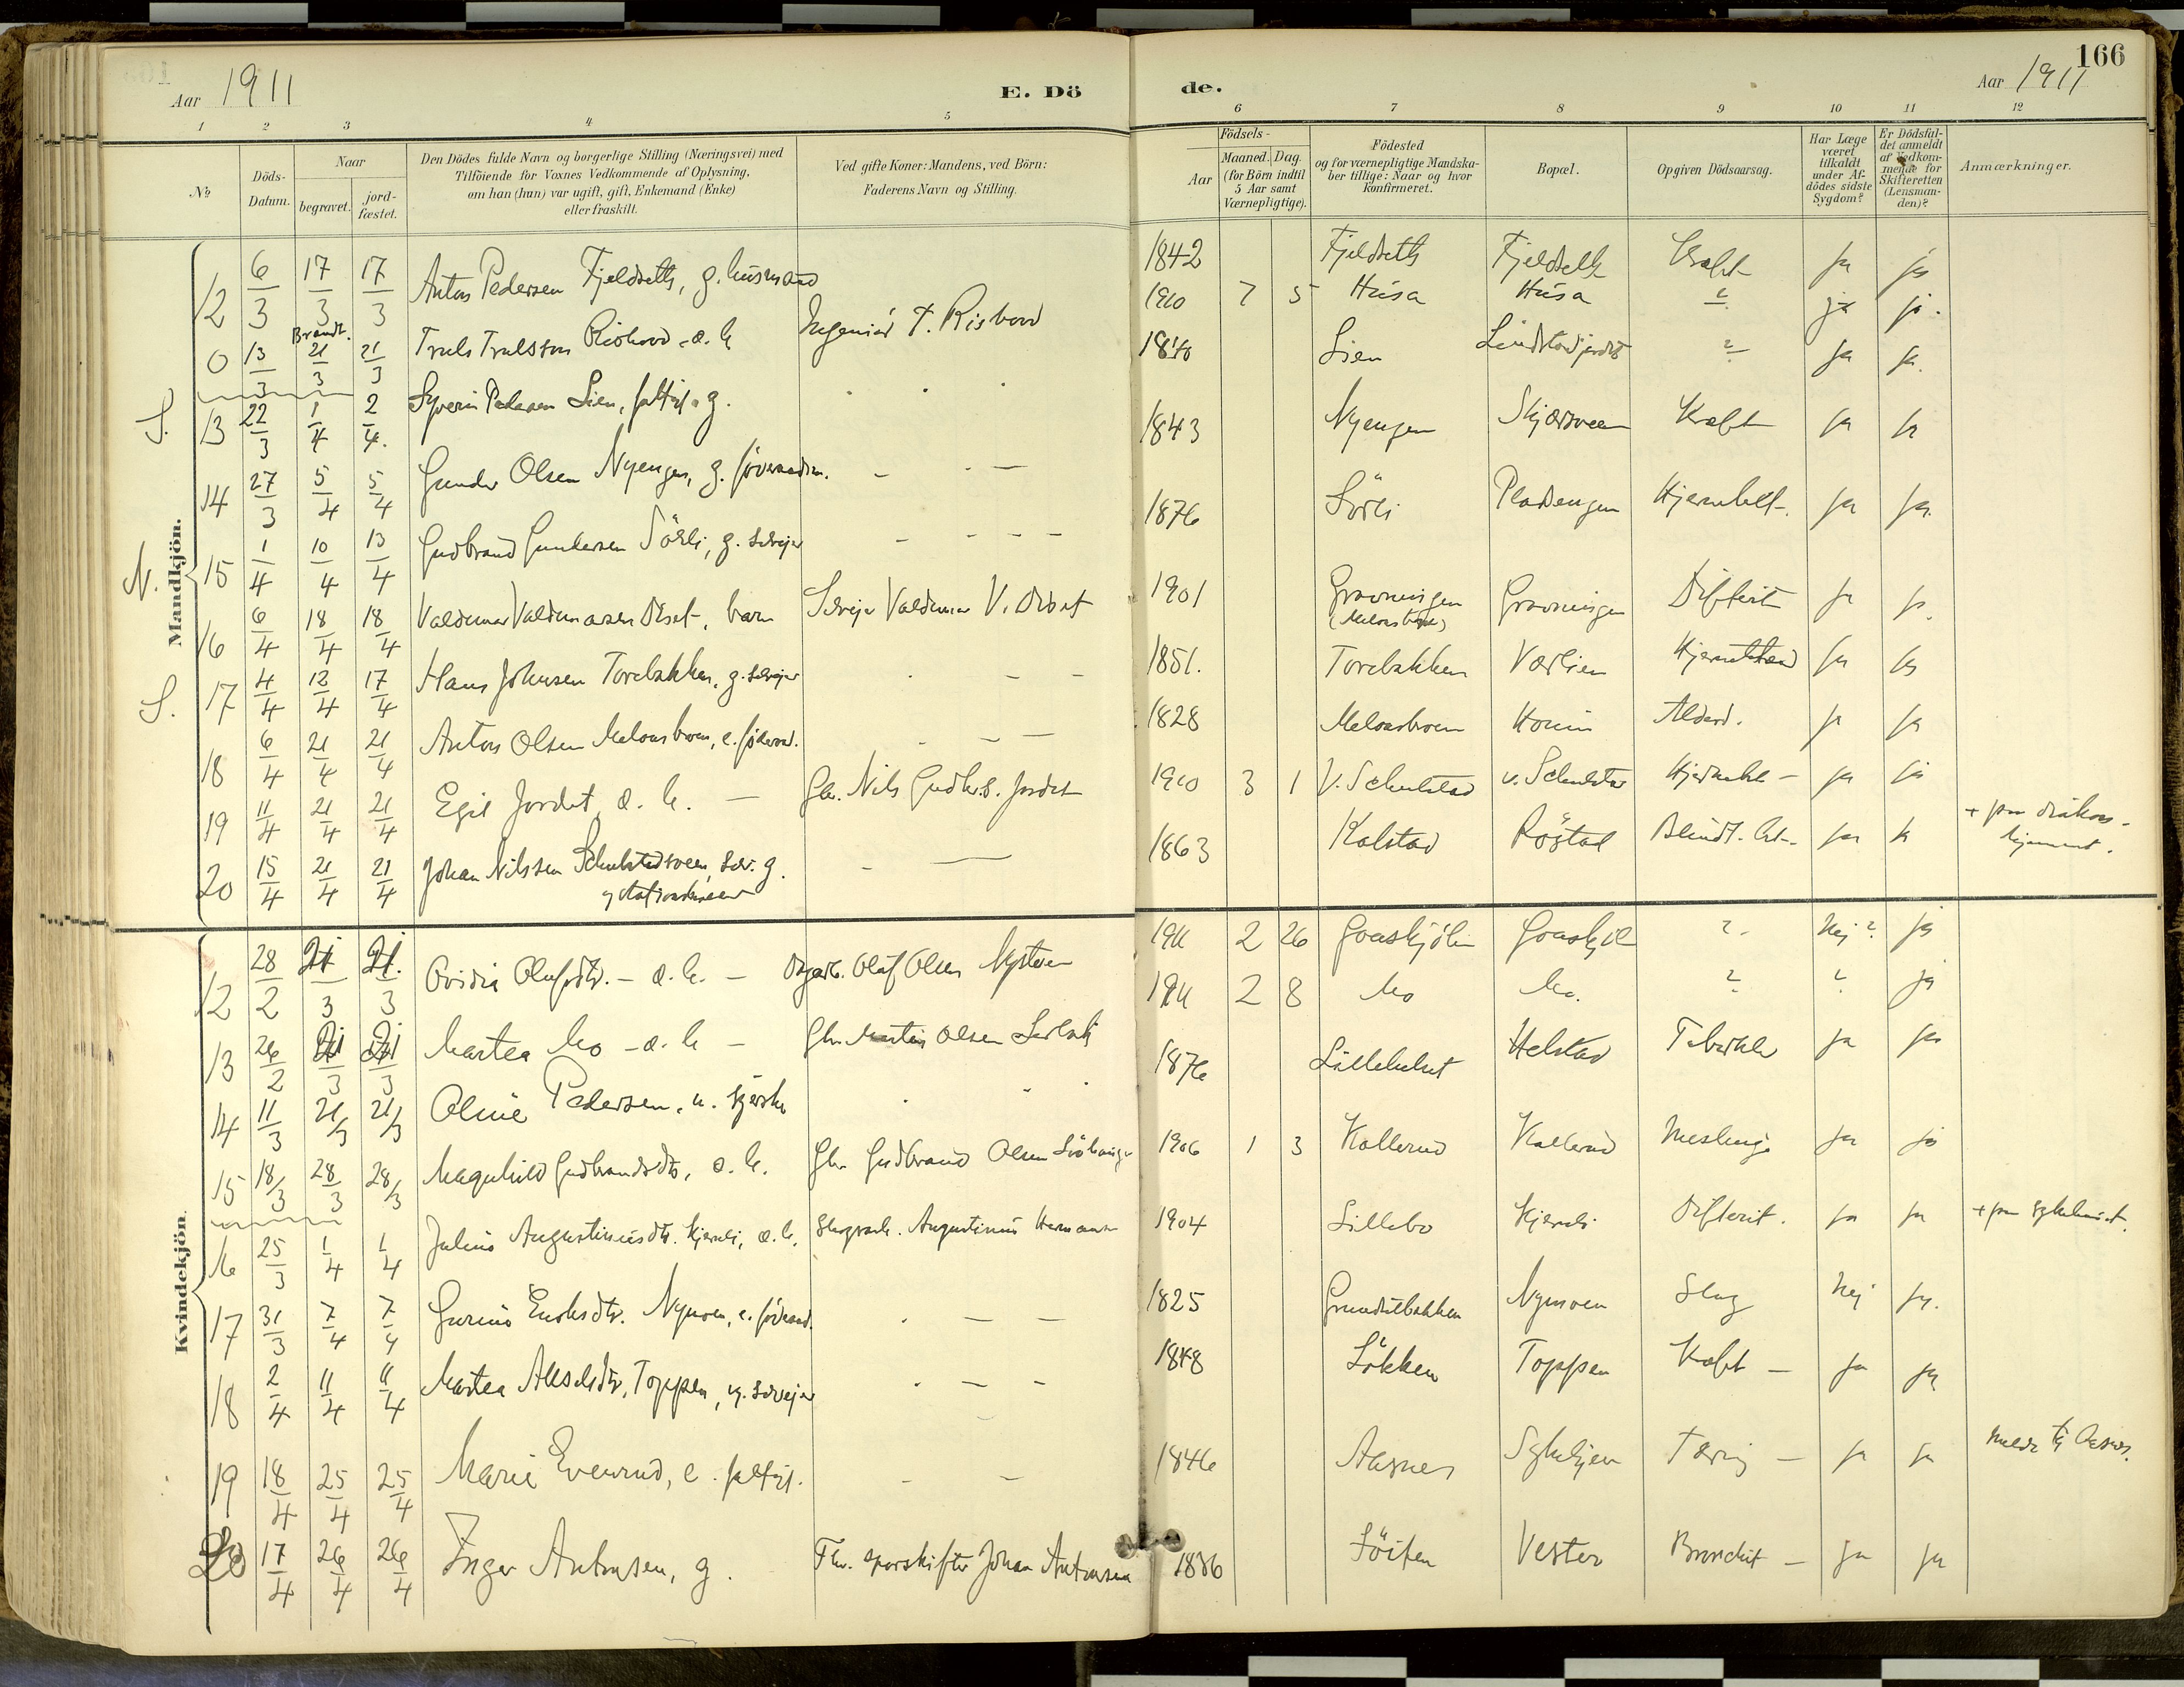 166
Aar 1911
E. Dö
de.
Aar 1911
1 2 3 4 5 6 7 8 9 10 11 12
No
Döds-Datum.
Naar
begravet.
jord-fæstet.
Den Dödes fulde Navn og borgerlige Stilling (Næringsvei) med
Tilföiende for Voxnes Vedkommende af Oplysning,
om han (hun) var ugift, gift, Enkemand (Enke)
eller fraskilt.
Ved gifte Koner: Mandens, ved Börn:
Faderens Navn og Stilling.
Födsels-
Aar
Maaned. Dag.
(for Börn indtil
5 Aar samt
Værnepligtige).
Födested
og for værnepligtige Mandska-
ber tillige: Naar og hvor
Konfirmeret.
Bopæl.
Opgiven Dödsaarsag.
Har Læge
været
tilkaldt
under Af-
dödes sidste
Sygdom?
Er Dödsfal-
det anmeldt
af Vedkom-
mende for
Skifteretten
(Lensman-
den)?
Anmærkninger.
Mandkjön.
12 6/3 17/3 17/3 Anton Pedersen Fjeldseth, g. husmand 1842 Fjeldseth Fjeldseth Kræft ja ja
0 13/3 Brændt. 21/3 21/3 Truls Trulsson Rishovd - æ. b. Ingeniør T. Rishovd 1910 7 5 Husa Husa ? ja ja.
S. 13 22/3 1/4 2/4. Syverin Pedersen Lien, fattigl. g. Lien ? ja ja.
14 27/3 5/4 5/4 Gunder Olsen Nyengen, g. 1843 Nyengen Skjærsveen Kræft ja ja
N. 15 1/4 10/4 13/4 Gudbrand Gundersen Sörli, g. selvejer 1876 Sörli Pladsengen ja ja.
16 6/4 18/4 18/4 Valdemar Valdemarsen Diset, barn Selvejer Valdemar V. Diset 1901 Gravningen Gravningen Difterit ja ja.
S. 17 4/4 12/4 17/4 Hans Johnsen Torebakken, g. selvejer 1851. Torebakken Værlien ja ja
18 6/4 21/4 21/4 Anton Olsen Melaasbroen, e. 1828 Melaasbroen Alderd. ja ja
19 11/4 21/4 21/4 Egil Jordet, æ. b. - Gbr. Nils Gudbr.s. Jordet 1910 3 1 V. Schulstad v. Schulstad ja ja
20 15/4 21/4 21/4 Johan Nilssen Schulstadsveen, selv. g. 1863 Kolstad Rögstad Blindt. bet. ja ja
Kvindekjön.
12 28/2 21/3 21/3 Ovidia Olafsdtr. - æ. b. - Olaf Olsen Nystuen 1911 2 26 ?. Nej ?. ja
13 26/2 21/3 21/3 Martea Mo - æ. b. - Gbr. Martin Olsen 1911 2 8 Mo Mo. ? ? ja
14 11/3 21/3 21/3 Oline Pedersen, u. syerske 1876 Helstad ja ja
15 18/3 28/3 28/3 Magnhild Gudbrandsdtr, æ. b. Gbr. Gudbrand Olsen 1906 1 3 Kollerud Kollerud Meslinge ja ja
16 25/3 1/4 1/4 Julie Augustinusdtr. Kjernli, æ. b. Augustinus Hermansen 1904 Lillebo Kjernli Difterit. ja ja
17 31/3 7/4 7/4 Nymoen, e. 1825 Grundsetbakken Nymoen Slag Nej ja.
18 2/4 11/4 11/4 Martea Toppen, g. selvejer 1848 Løkken Toppen Kræft - ja ja
19 18/4 25/4 25/4 Marie Evenrud, e. fattigl. 1846 Aasnes Sykehjem Tæring - ja ja
20 17/4 26/4 26/4 Inger Antonsen, g. Fhv. sporskifter Johan Antonsen 1836 Söiten Vester Bronchit - ja ja